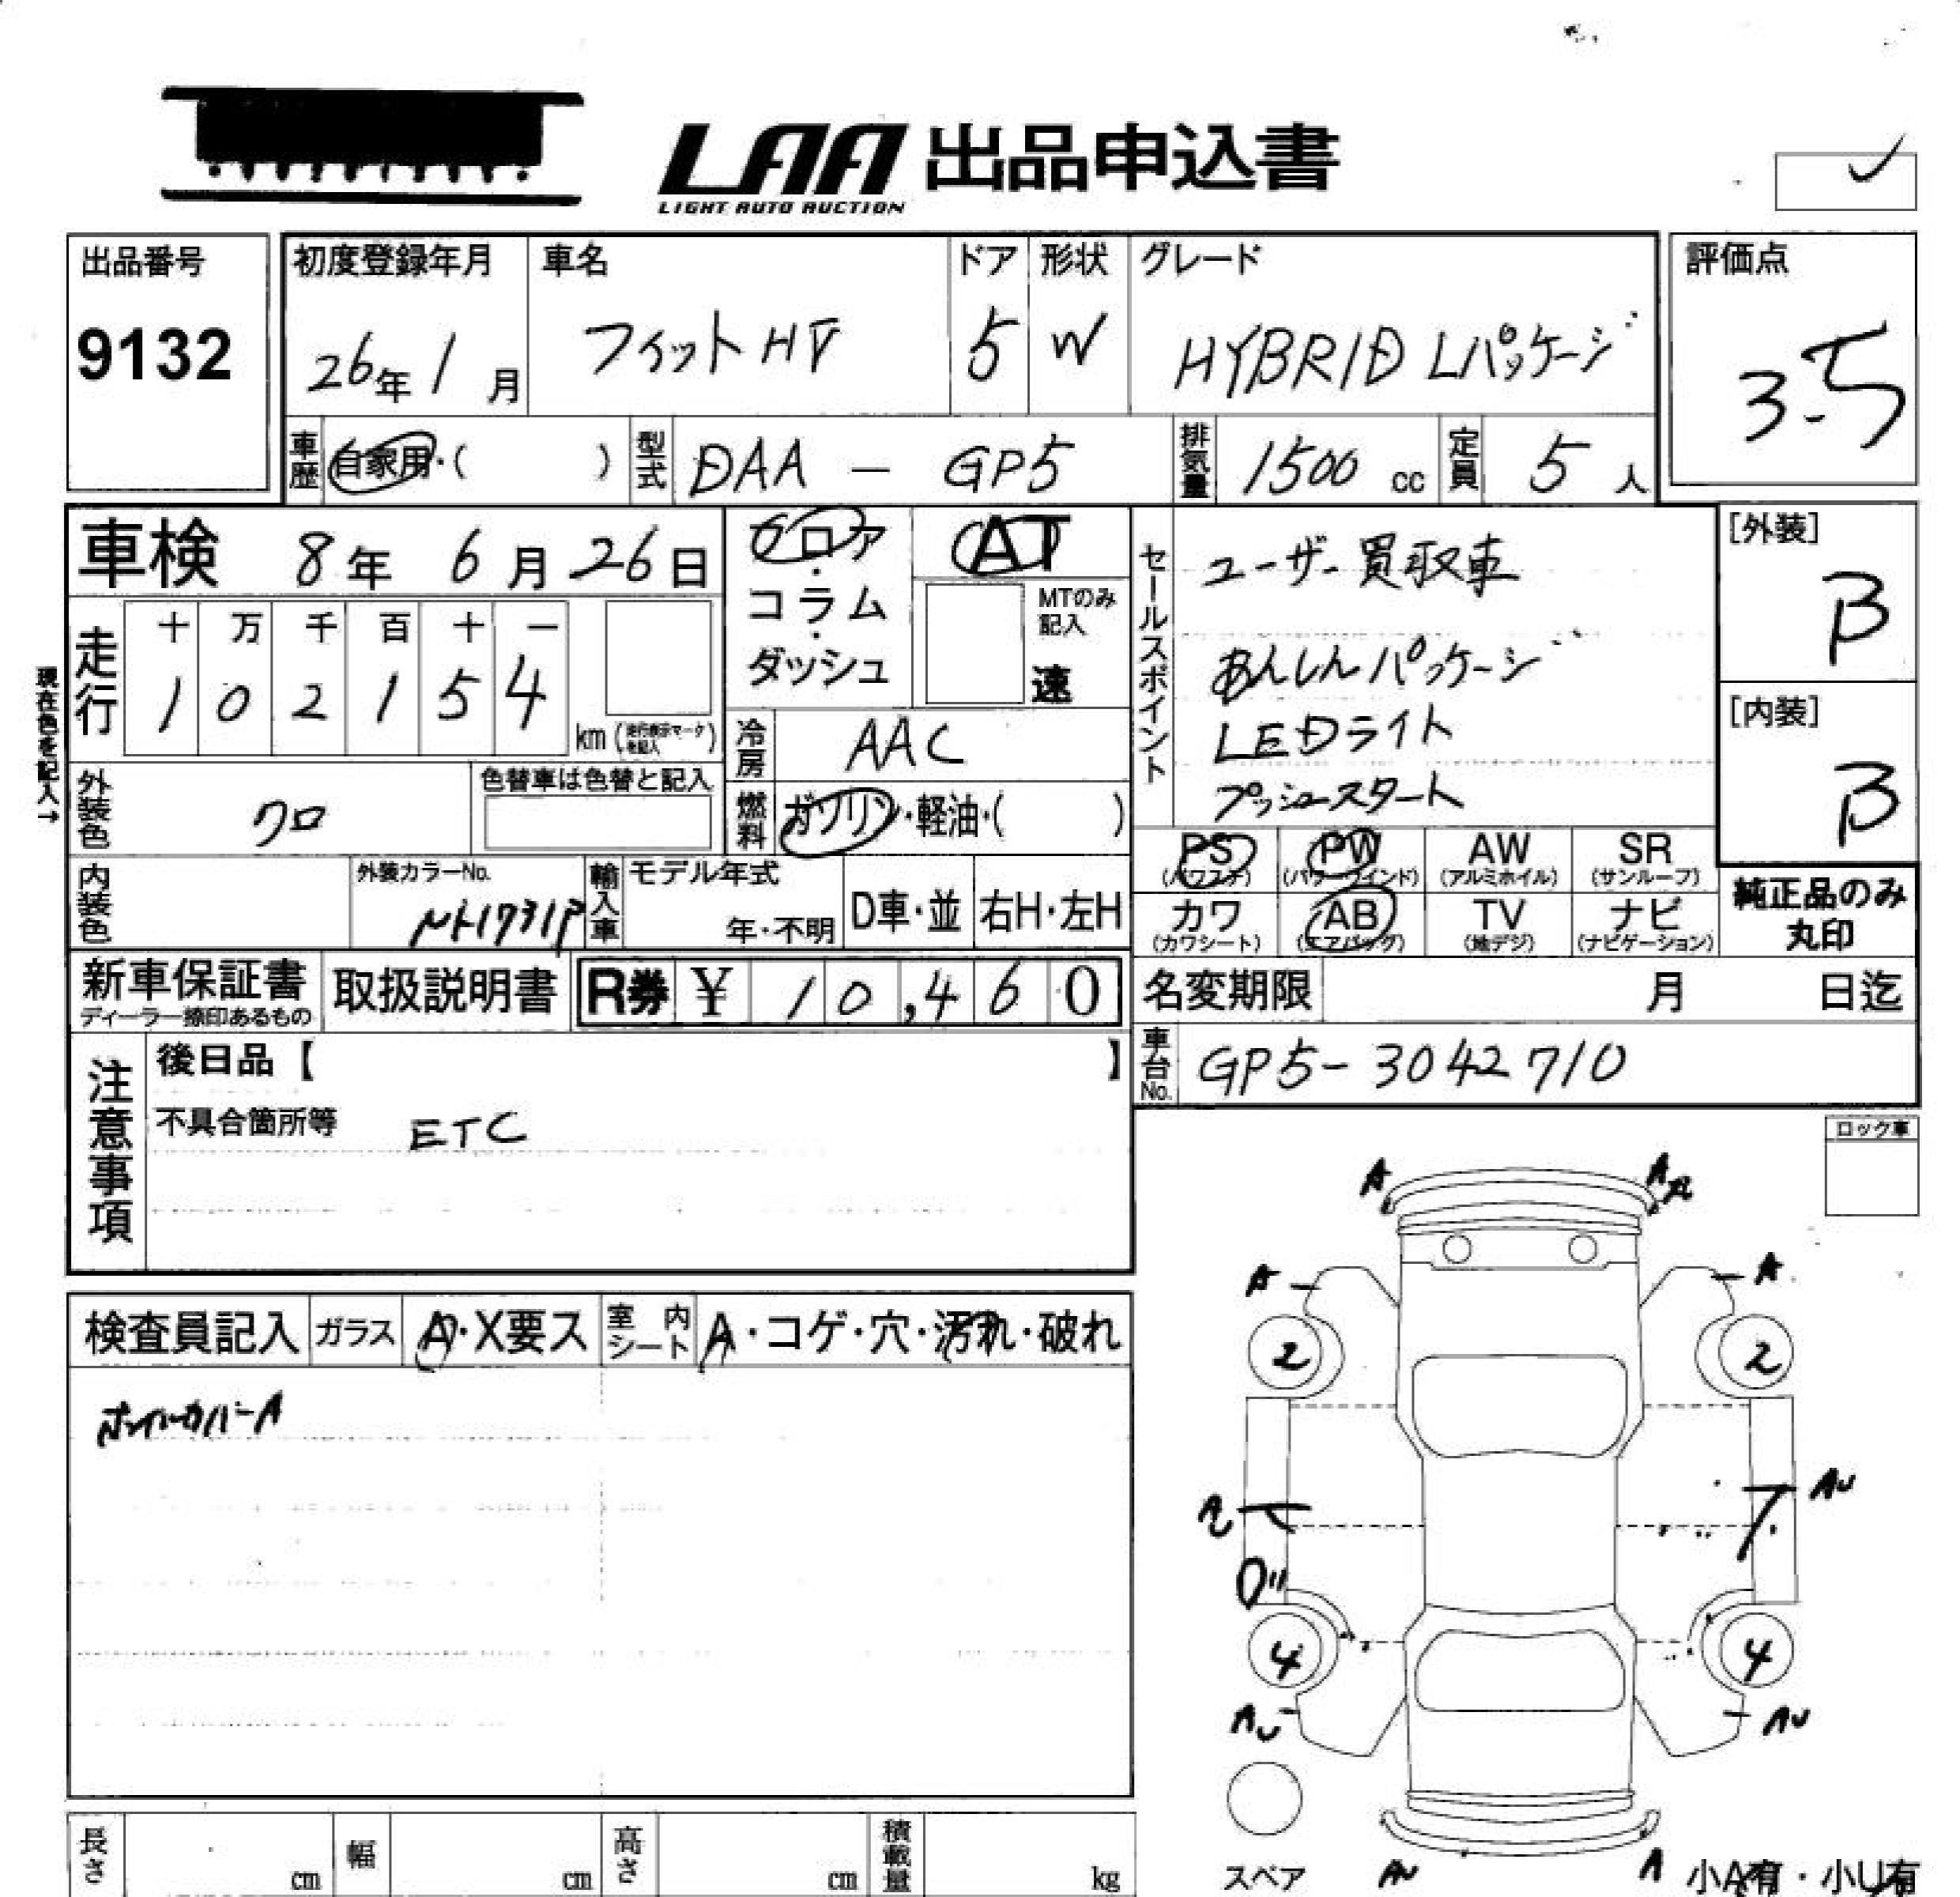 LAA 出品申込書
LIGHT AUTO AUCTION
出品番号
9132
初度登録年月
26年 1月
車名
フィットHV
ドア
5
形状
W
グレード
HYBRID Lパッケージ
評価点
3.5
車歴 自家用・( )
型式 DAA - GP5
排気量 1500 cc
定員 5 人
車検 8年 6月 26日
フロア・コラム・ダッシュ
AT
MTのみ記入
速
走行
十 万 千 百 十 一
1 0 2 1 5 4
km (走行表示マークを記入)
現在色を記入→
冷房 AAC
外装色 クロ
色替車は色替と記入
燃料 ガソリン・軽油・( )
内装色
外装カラーNo.
輸入車
モデル年式
年・不明
D車・並
右H・左H
セールスポイント
ユーザー買取車
あんしんパッケージ
LEDライト
プッシュスタート
[外装]
B
[内装]
B
PS (パワステ)
PW (パワーウインド)
AW (アルミホイル)
SR (サンルーフ)
カワ (カワシート)
AB (エアバッグ)
TV (地デジ)
ナビ (ナビゲーション)
純正品のみ丸印
新車保証書
ディーラー捺印あるもの
取扱説明書
R券 ¥ 10,460
名変期限 月 日迄
車台No. GP5-3042710
注意事項
後日品【 】
不具合箇所等 ETC
ロック車
検査員記入
ガラス A・X要ス
室内シート A・コゲ・穴・汚れ・破れ
ホイールカバーA
A A
A A
2 2
AU
4 4
AU AU
スペア
AU A
小A有・小U有
長さ cm
幅 cm
高さ cm
積載量 kg